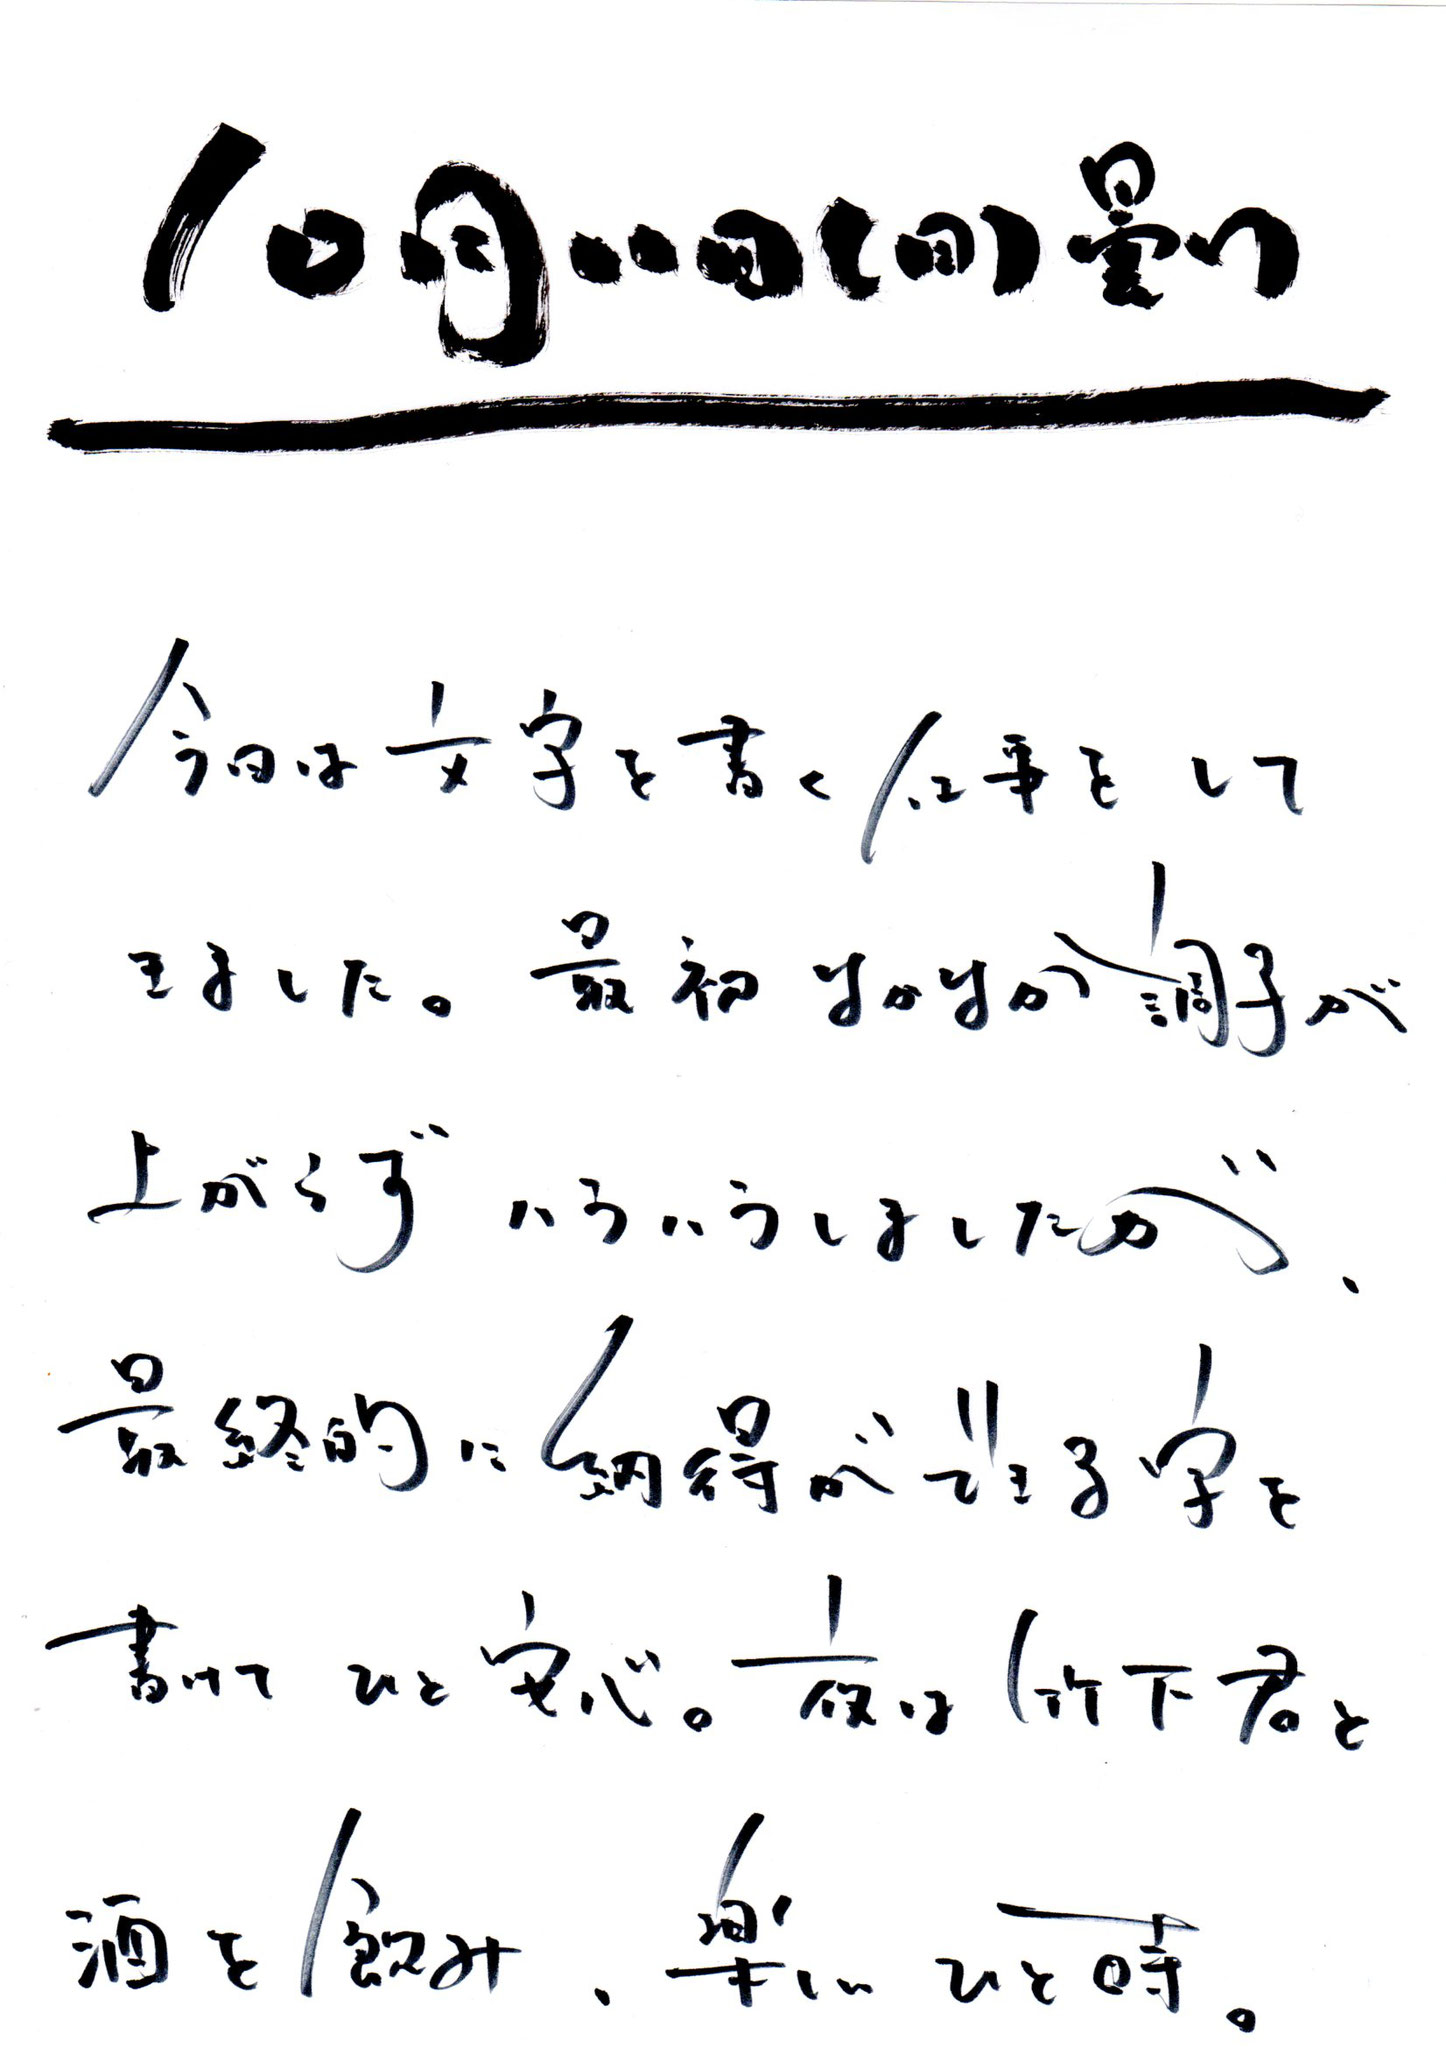 10月11日(日)曇り
今日は文字を書く仕事をして
きました。最初なかなか調子が
上がらず いろいろしましたが、
最終的に納得ができる字を
書けて ひと安心。夜は竹下君と
酒を飲み、楽しい ひと時。